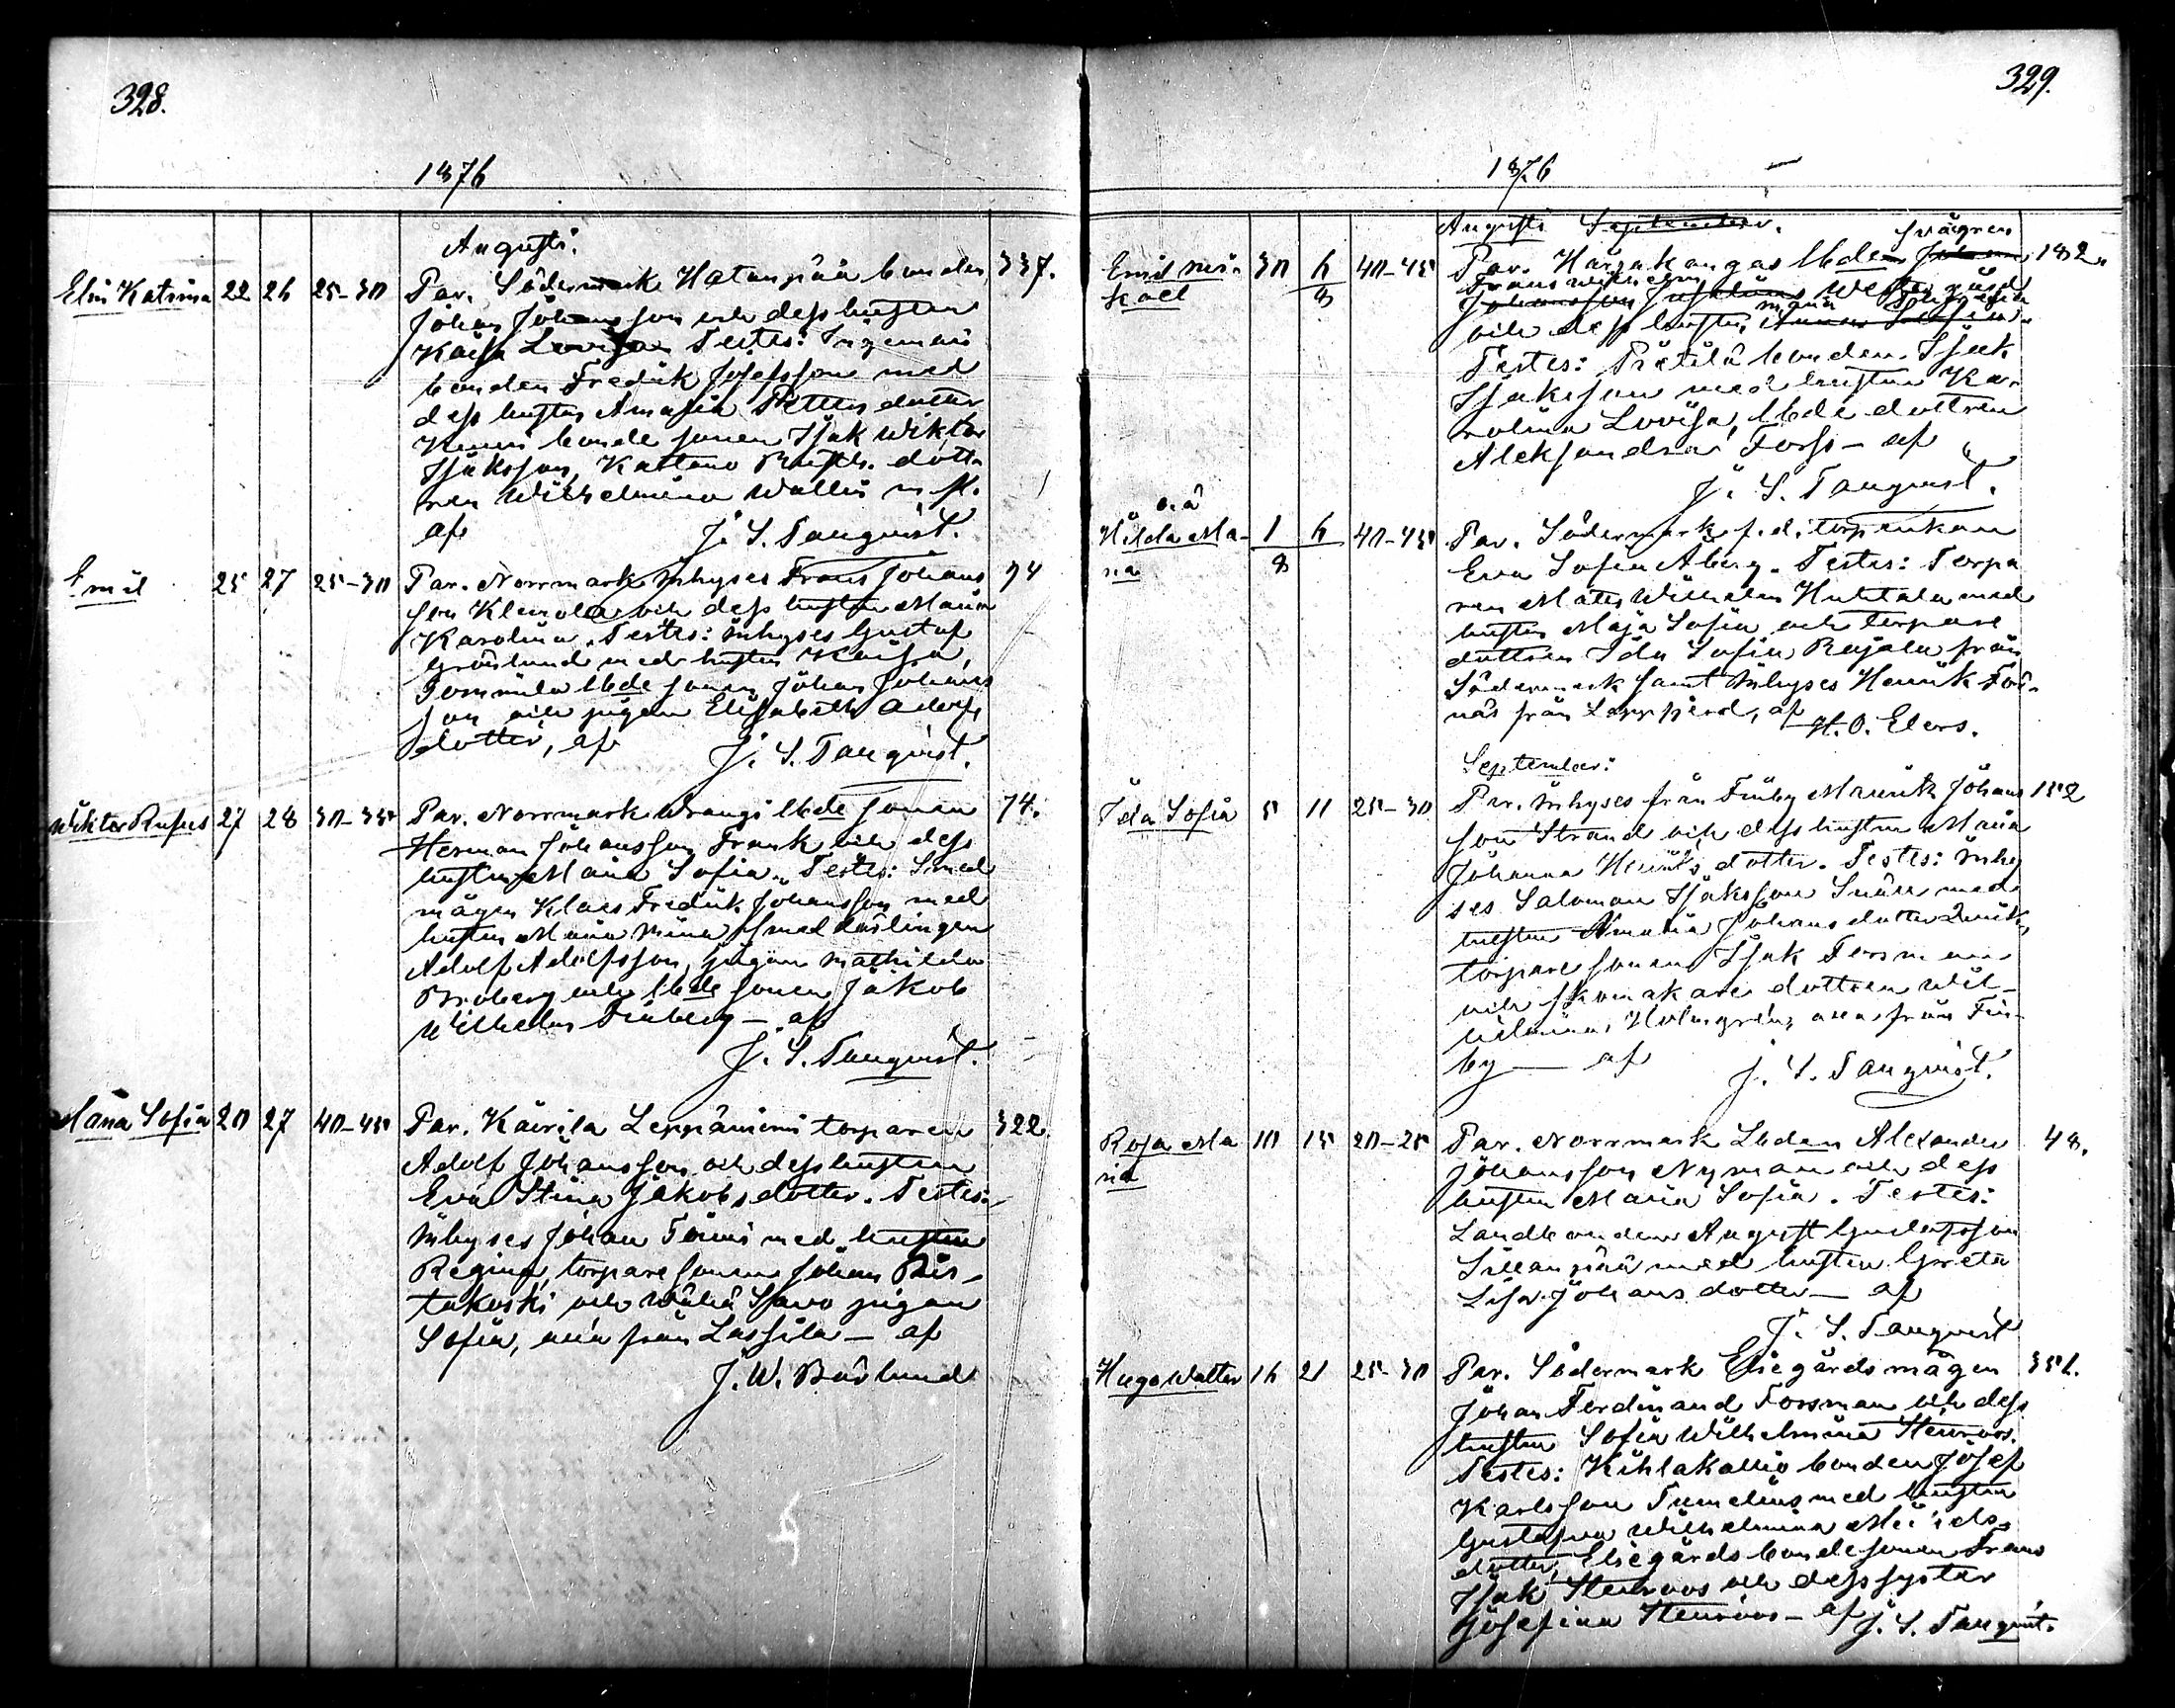 328.
1876
Augusti:
Elin Katrina 22 26 25-30 Par. Södermark Hatanpää bonden 337.
Johan Johansson och dess hustru
Kaisa Lovisa Testes:
bonden Fredrik Josefsson med
dess hustru Amalia Petters dotter
bonde sonen Isak Wiktor
Isaksson, dott-
ren Wilhelmina Wallin
af J. S. Tanqvist.
Emil 25 27 25-30 Par. Norrmark Inhyses Frans Johans 74
son Klemola och dess hustru Maria
Karolina. Testes: Inhyses Gustaf
Grönlund med hustru Kaisa,
Tommila Lbde sonen Johan Johans
son och pigan Elisabeth Adolfs
dotter, af J. S. Tanqvist.
Wiktor Rufus 27 28 30-35 Par. Norrmark Wrangi Lbde sonen 74.
Herman Johansson Frank och dess
hustru Maria Sofia. Testes: Smed
mågen Klaes Fredrik Johansson med
hustru Maria Mina Smed lärlingen
Adolf Adolfsson, pigan Mathilda
Broberg och Lbde sonen Jakob
Wilhelm Finberg - af
J. S. Tanqvist.
Maria Sofia 20 27 40-45 Par. Kairila Leppäniemi torparen 322.
Adolf Johansson och dess hustru
Eva Stina Jakobsdotter. Testes:
Inhyses Johan Toivi med hustru
Regina, torpare sonen Johan Ris-
takoski och Wähä Sawo pigan
Sofia, alla från Lassila - af
J. W. Bärlund
329.
1876
Augusti September.
Emil Mi- 30 6 40-45 Par. Harjakangas Lbden Johan Svägren 182.
kael 8 Frans Wilhelm
Johansson
och dess hustru Maria
Testes: Prätilä bonden Isak
Isaksson med hustru Ka-
rolina Lovisa, Lbde dottren
Aleksandra Forss - af
J. S. Tanqvist.
oä
Hilda Ma- 1 6 40-45 Par. Södermark f. d. torpenkan
ria 8 Eva Sofia Åberg. Testes: Torpa
ren Mats Wilhelm Huhtala med
hustru Maja Sofia och torpare
dottren Ida Sofia Rajala från
Södermark samt Inhyses Henrik
från Lappfjerd, af H. O. Elers.
September:
Ida Sofia 5 11 25-30 Par. Inhyses från Finby Maurits Johans 152
son Strand och dess hustru Maria
Johanna Henriks dotter. Testes: Inhy
ses Salomon Isaksson med
hustru Amalia Johans dotter
torpare sonen Isak Forsman
och skomakare dottren Wil-
helmina Holmgren, alla från Fin-
by - af J. S. Tanqvist.
Rosa Ma 10 15 20-25 Par. Norrmark Lbden Alexander 48.
ria Johansson Nyman och dess
hustru Maria Sofia. Testes:
Landbonden August Gustafsson
Sillanpää med hustru Greta
Lisa Johans dotter - af
J. S. Tanqvist
Hugo Walter 16 21 25-30 Par. Södermark Elsegårds mågen 351.
Johan Ferdinand Forsman och dess
hustru Sofia Wilhelmina Stenroos.
Testes: Kihlakallio bonden Josef
Karlsson Tumelius med hustru
Gustafva Wilhelmina
dotter, Elsegårds bondesonen Frans
Isak Stenroos och dess syster
Josefina Stenroos - af J. S. Tanqvist.